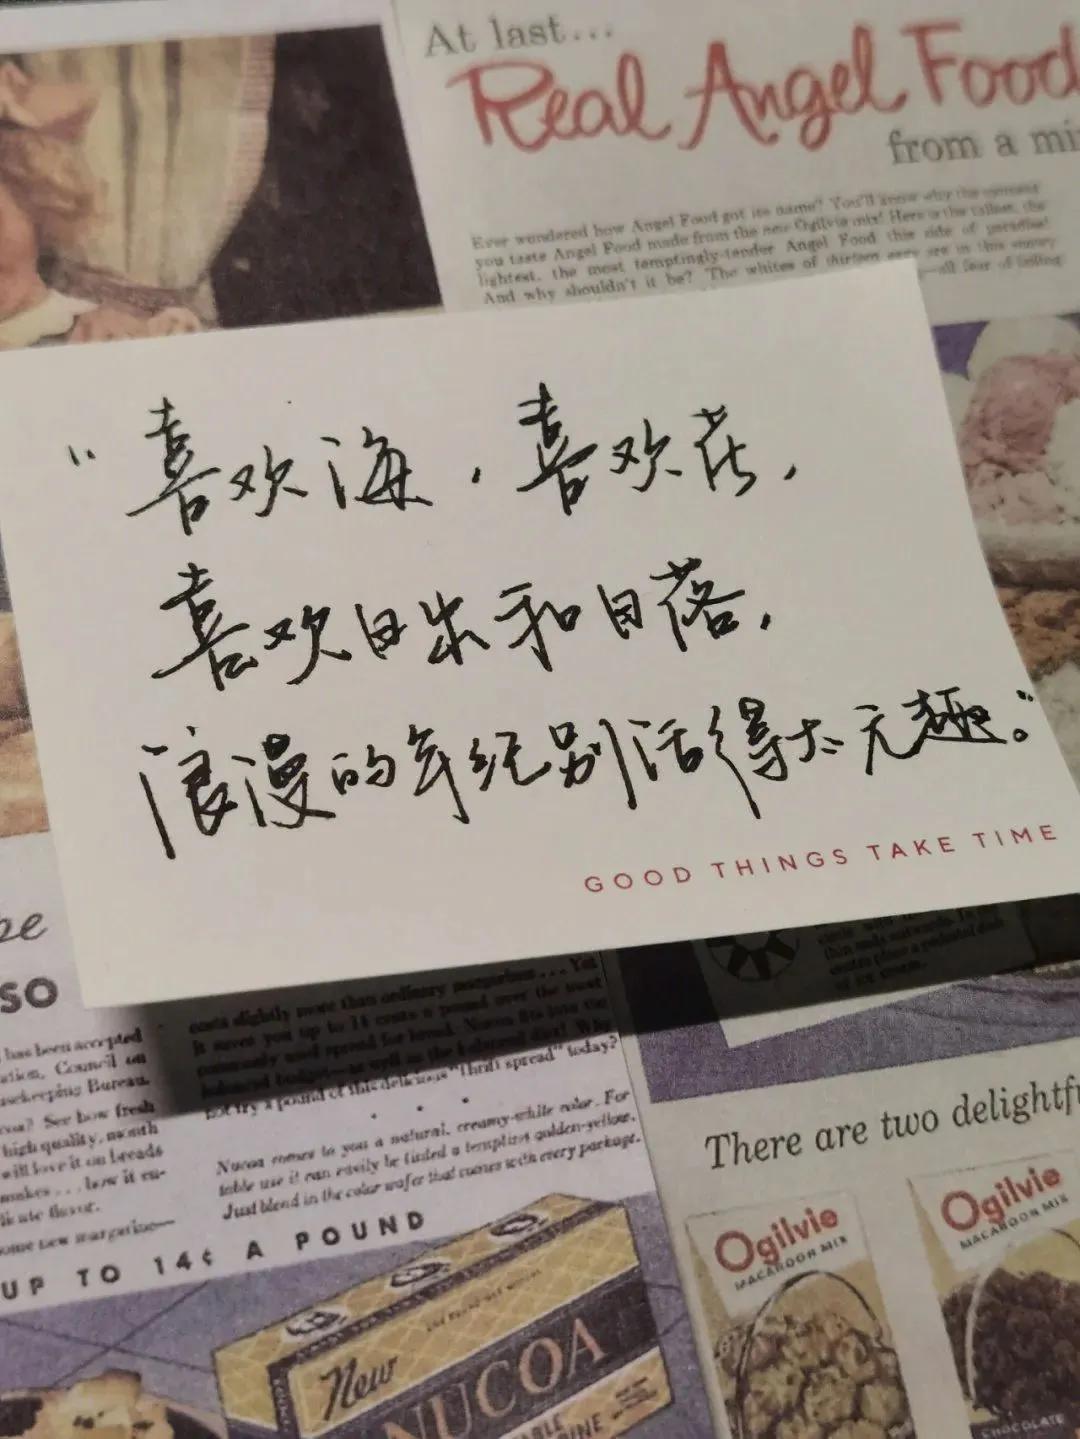 At last...
Real Angel Food
from a mi
Ever wondered how Angel Food got its name? You'll know why the moment
you taste Angel Food made from the new Ogilvie mix! Here is the tallest, the
lightest, the most temptingly-tender Angel Food this side of paradise!
And why shouldn't it be? The whites of thirteen eggs are in this
—all fear of failing
“喜欢海，喜欢花，
喜欢日出和日落，
浪漫的年纪别活得太无趣。”
GOOD THINGS TAKE TIME
SO
has been accepted
Council on
Bureau.
See how fresh
high quality, month
will love it on breads
makes... how it en-
flavor.
some new margarine—
costs slightly more than ordinary margarine... Yet
it saves you up to 14 cents a pound over the most
commonly used spread for bread. Nucoa fits into the
balanced budget—as well as the balanced diet! Why
not try a pound of this delicious "Thrift spread" today?
Nucoa comes to you a natural, creamy-white color. For
table use it can easily be tinted a tempting golden-yellow.
Just blend in the color wafer that comes with every package.
UP TO 14¢ A POUND
New
NUCOA
There are two delightf
Ogilvie
MACAROON MIX
Ogilvie
MACAROON MIX
CHOCOLATE